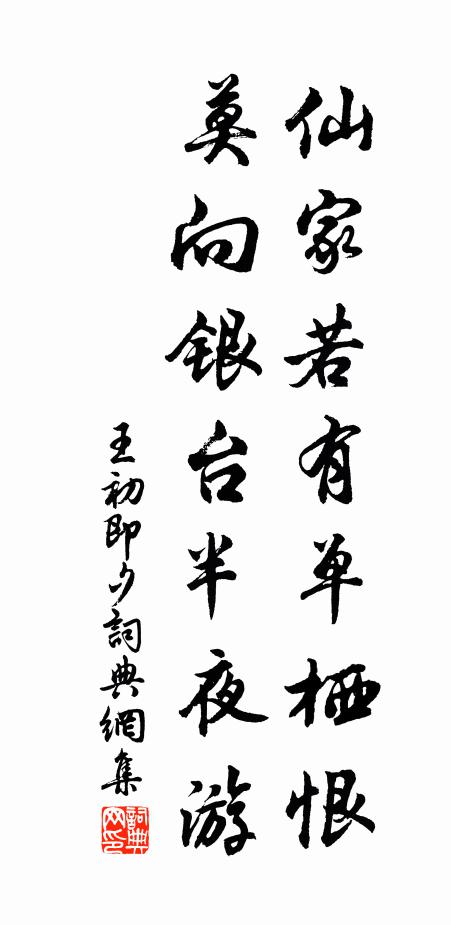 仙家若有单栖恨
莫向银台半夜游
王初即夕詞典網集
詞典网印